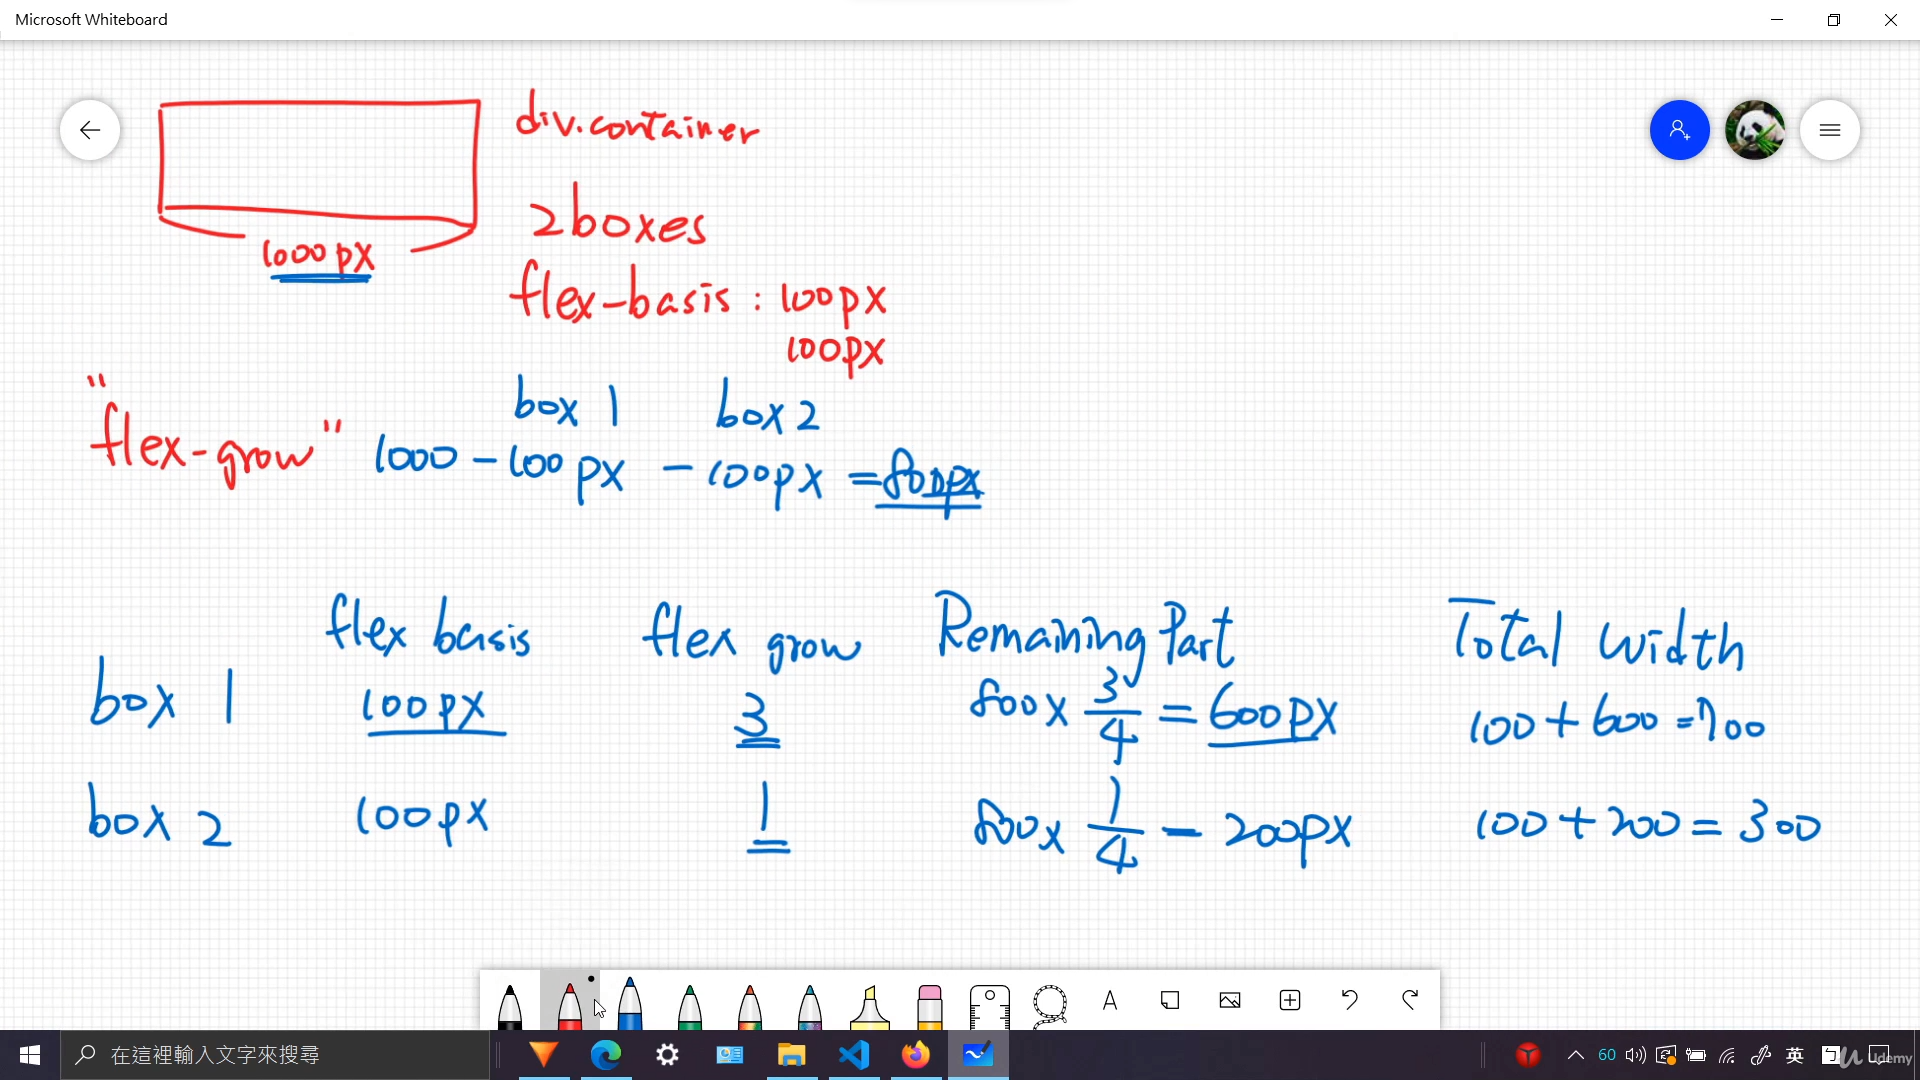 Microsoft Whiteboard
div.container
2boxes
1000px
flex-basis : 100px
100px
box 1 box 2
"flex-grow" 1000 - 100px - 100px = 800px
flex basis flex grow Remaining Part Total Width
box 1 100px 3 800 x 3/4 = 600px 100 + 600 = 700
box 2 100px 1 800 x 1/4 - 200px 100 + 200 = 300
在這裡輸入文字來搜尋
60 英
Udemy